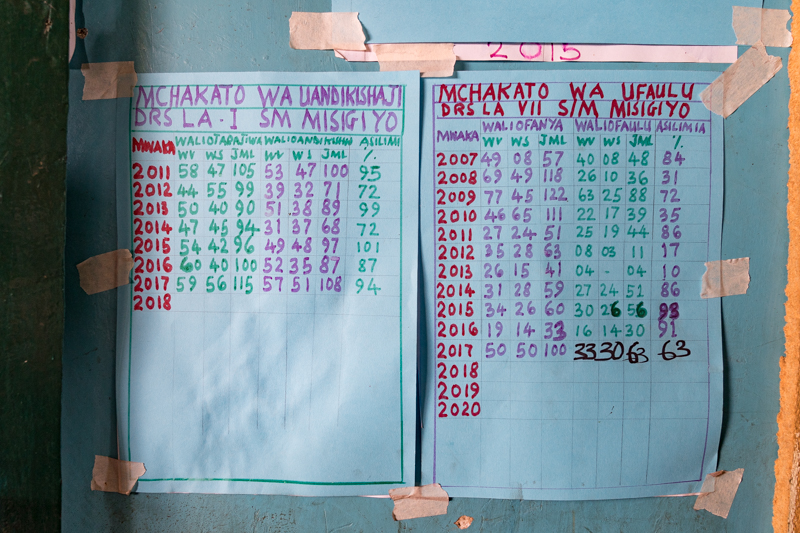 2015
MCHAKATO WA UANDIKISHAJI
DRS LA - I SM MISIGIYO
MWAKA WALIOTARAJIWA WALIOANDIKISHW ASILIMI
WV WS JML WV WS JML %
2011 58 47 105 53 47 100 95
2012 44 55 99 39 32 71 72
2013 50 40 90 51 38 89 99
2014 47 45 94 31 37 68 72
2015 54 42 96 49 48 97 101
2016 60 40 100 52 35 87 87
2017 59 56 115 57 51 108 94
2018
MCHAKATO WA UFAULU
DRS LA VII S/M MISIGIYO
MWAKA WALIOFANYA WALIOFAULU ASILIMIA
WV WS JML WV WS JML %
2007 49 08 57 40 08 48 84
2008 69 49 118 26 10 36 31
2009 77 45 122 63 25 88 72
2010 46 65 111 22 17 39 35
2011 27 24 51 25 19 44 86
2012 35 28 63 08 03 11 17
2013 26 15 41 04 - 04 10
2014 31 28 59 27 24 51 86
2015 34 26 60 30 26 56 93
2016 19 14 33 16 14 30 91
2017 50 50 100 33 30 63 63
2018
2019
2020